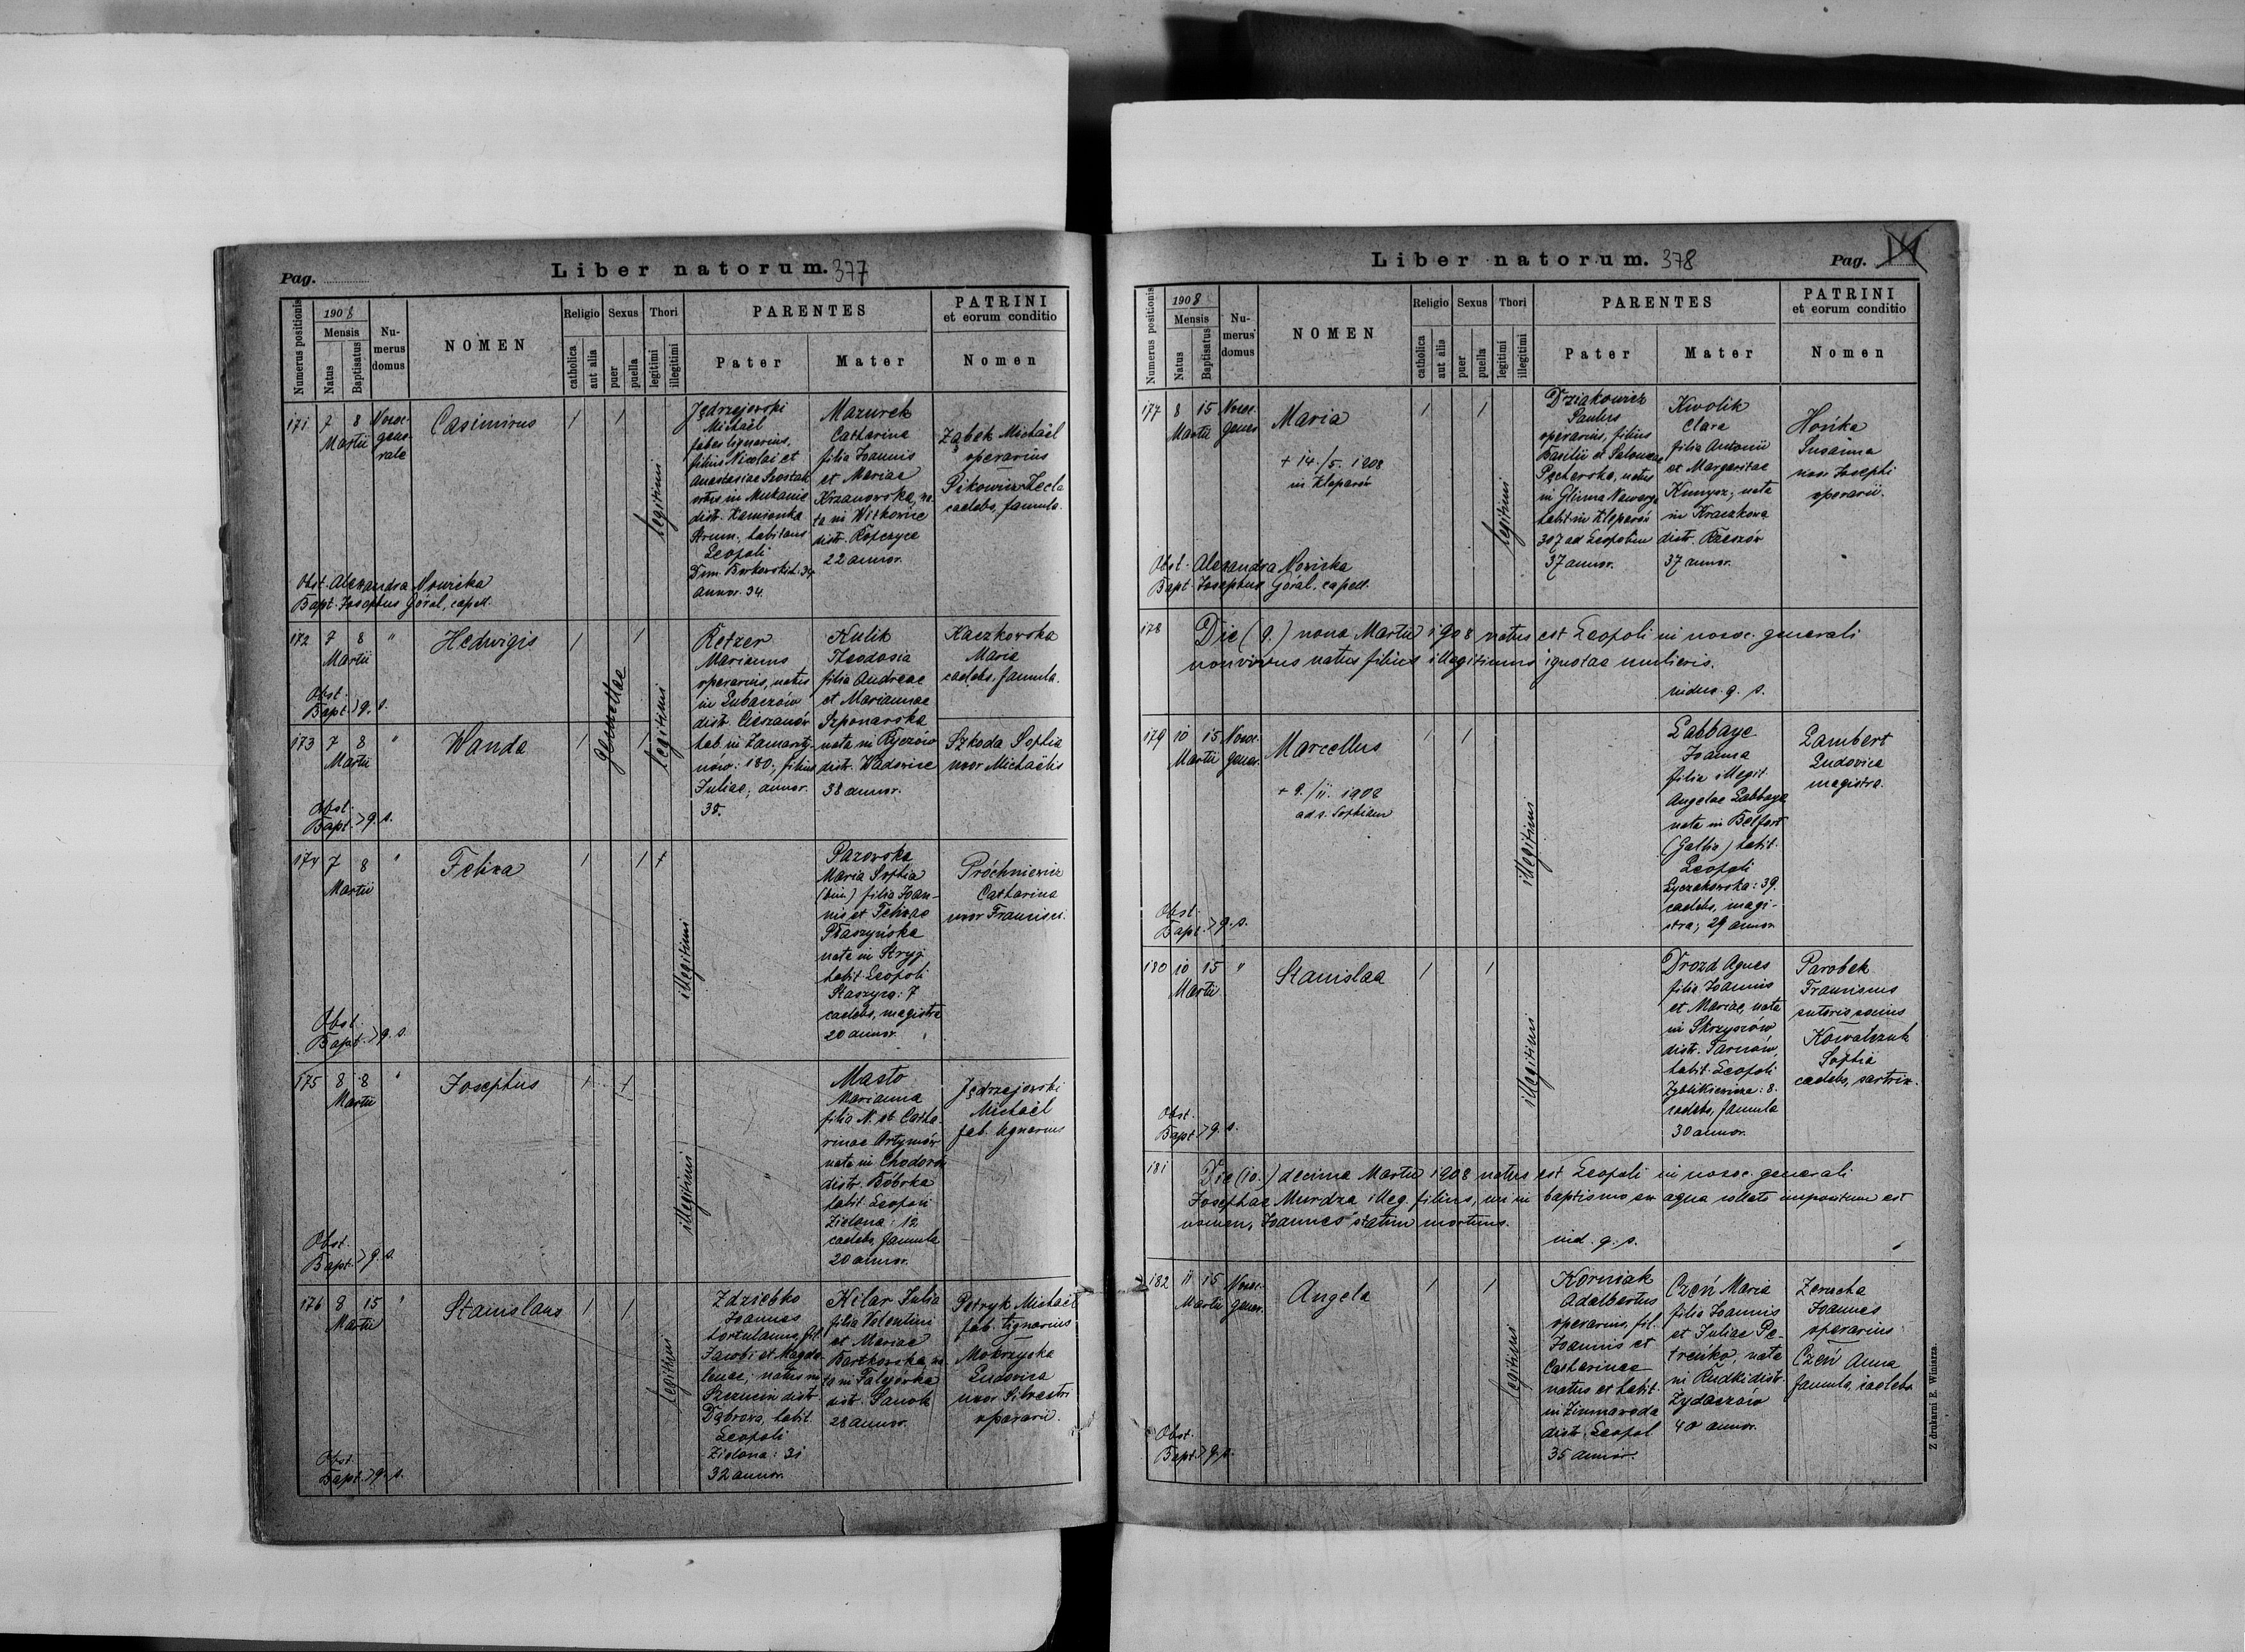 Pag.
Liber natorum. 377
Numerus positionis
1908
Mensis
Natus
Baptisatus
Nu-
merus
domus
NOMEN
Religio
catholica
aut alia
Sexus
puer
puella
Thori
legitimi
illegitimi
PARENTES
Pater
Mater
PATRINI
et eorum conditio
Nomen
171
7
8
Martii
Nosoc.
gene-
rale
Casimirus
legitimi
Jędrzejowski
Michaël
faber lignarius,
filius Nicolai et
Anastasiae
distr. Kamionka
Strum., habitans
Leopoli
annor. 34.
Mazurek
Catharina
filia Joannis
et Mariae
Krzanowska, na-
ta in Witkowice
distr. Ropczyce
22 annor.
Ząbek Michaël
operarius
caelebs, famula.
Obst. Alexandra Nowicka
Bapt. Josephus Góral, capell.
172
7
8
Martii
"
Hedwigis
gemellae
legitimi
Retzer
Marianus
operarius, natus
in Lubaczów
distr. Cieszanów
hab. in Zamarsty-
nów: 180; filius
Juliae; annor.
35.
Kulik
Theodosia
filia Andreae
et Mariannae
Szponarska
nata in Ryczów
distr. Wadowice
38 annor.
Kaczkowska
Maria
caelebs, famula.
Obst.
Bapt. > q. s.
173
7
8
Martii
"
Wanda
legitimi
Szkoda Sophia
uxor Michaëlis
Obst.
Bapt. > q. s.
174
7
8
Martii
"
Felixa
illegitimi
Pazowska
Maria Sophia
(bin.) filia Joan-
nis et Felixae
Płaszyńska
nata in Stryj
habit. Leopoli
Staszyca: 7
caelebs, magistra
20 annor.
Próchniewicz
Catharina
uxor Francisci.
Obst.
Bapt. > q. s.
175
8
8
Martii
"
Josephus
illegitimi
Masto
Marianna
filia N. et Catha-
rinae Artymów
nata in Chodorów
distr. Bóbrka
habit. Leopoli
Zielona: 12
caelebs, famula
20 annor.
Jędrzejowski
Michaël
fab. lignarius
Obst.
Bapt. > q. s.
176
8
15
Martii
"
Stanislaus
legitimi
Zdziebko
Joannes
hortulanus, fil.
Jacobi et Magda-
lenae; natus in
Szczucin distr.
Dąbrowa, habit.
Leopoli
Zielona: 31
32 annor.
Kilar Julia
filia Valentini
et Mariae
Bartkowska, na-
ta in
distr. Sanok
28 annor.
Petryk Michaël
fab. lignarius
Mokrzycka
Ludovica
uxor Silvestri
operarii.
Obst.
Bapt. > q. s.
Liber natorum. 378
Pag.
Numerus positionis
1908
Mensis
Natus
Baptisatus
Nu-
merus
domus
NOMEN
Religio
catholica
aut alia
Sexus
puer
puella
Thori
legitimi
illegitimi
PARENTES
Pater
Mater
PATRINI
et eorum conditio
Nomen
177
8
15
Martii
Nosoc.
gener.
Maria
+ 14./5. 1908
in Kleparów
legitimi
Dziakowicz
Paulus
operarius, filius
Basilii et Salomeae
natus
in Glinna Nawarya
habit. in Kleparów
307 ad Leopolim
37 annor.
Kwolik
Clara
filia Antonii
et Margaritae
nata
in Kraczkowa
distr. Rzeszów
37 annor.
Hońka
Susanna
uxor Josephi
operarii.
Obst. Alexandra Nowicka
Bapt. Josephus Góral, capell.
178
Die (9.) nona Martii 1908 natus est Leopoli in nosoc. generali
nonvivus natus filius illegitimus ignotae mulieris.
q. s.
179
10
15
Martii
Nosoc.
gener.
Marcellus
+ 9./11. 1908
ad s. Sophiam
illegitimi
Labbaye
Joanna
filia illegit.
Angelae Labbaye
nata in Belfort
(Gallia) habit.
Leopoli
Łyczakowska: 39.
caelebs, magi-
stra; 29 annor.
Lambert
Ludovica
magistra.
Obst.
Bapt. > q. s.
180
10
15
Martii
"
Stanislaa
illegitimi
Drozd Agnes
filia Joannis
et Mariae, nata
in Skrzyszów
distr. Tarnów,
habit. Leopoli
Zyblikiewicza: 8.
caelebs, famula
30 annor.
Parobek
Franciscus
sutoris socius
Kowalczuk
Sophia
caelebs, sartrix.
Obst.
Bapt. > q. s.
181
Die (10.) decima Martii 1908 natus est Leopoli in nosoc. generali
Josephae Murdza illeg. filius, cui in baptismo ex aqua collato impositum est
nomen "Joannes" statim mortuus.
q. s.
182
11
15
Martii
Nosoc.
gener.
Angela
legitimi
Korniak
Adalbertus
operarius, fil.
Joannis et
Catharinae
natus et habit.
in Zimnawoda
distr. Leopol
35 annor.
Czeń Maria
filia Joannis
et Juliae Pe-
treńko, nata
in Rudki distr.
Żydaczów
40 annor.
Zerucha
Joannes
operarius
Czeń Anna
famula, caelebs
Obst.
Bapt. > q. s.
Z drukarni E. Winiarza.